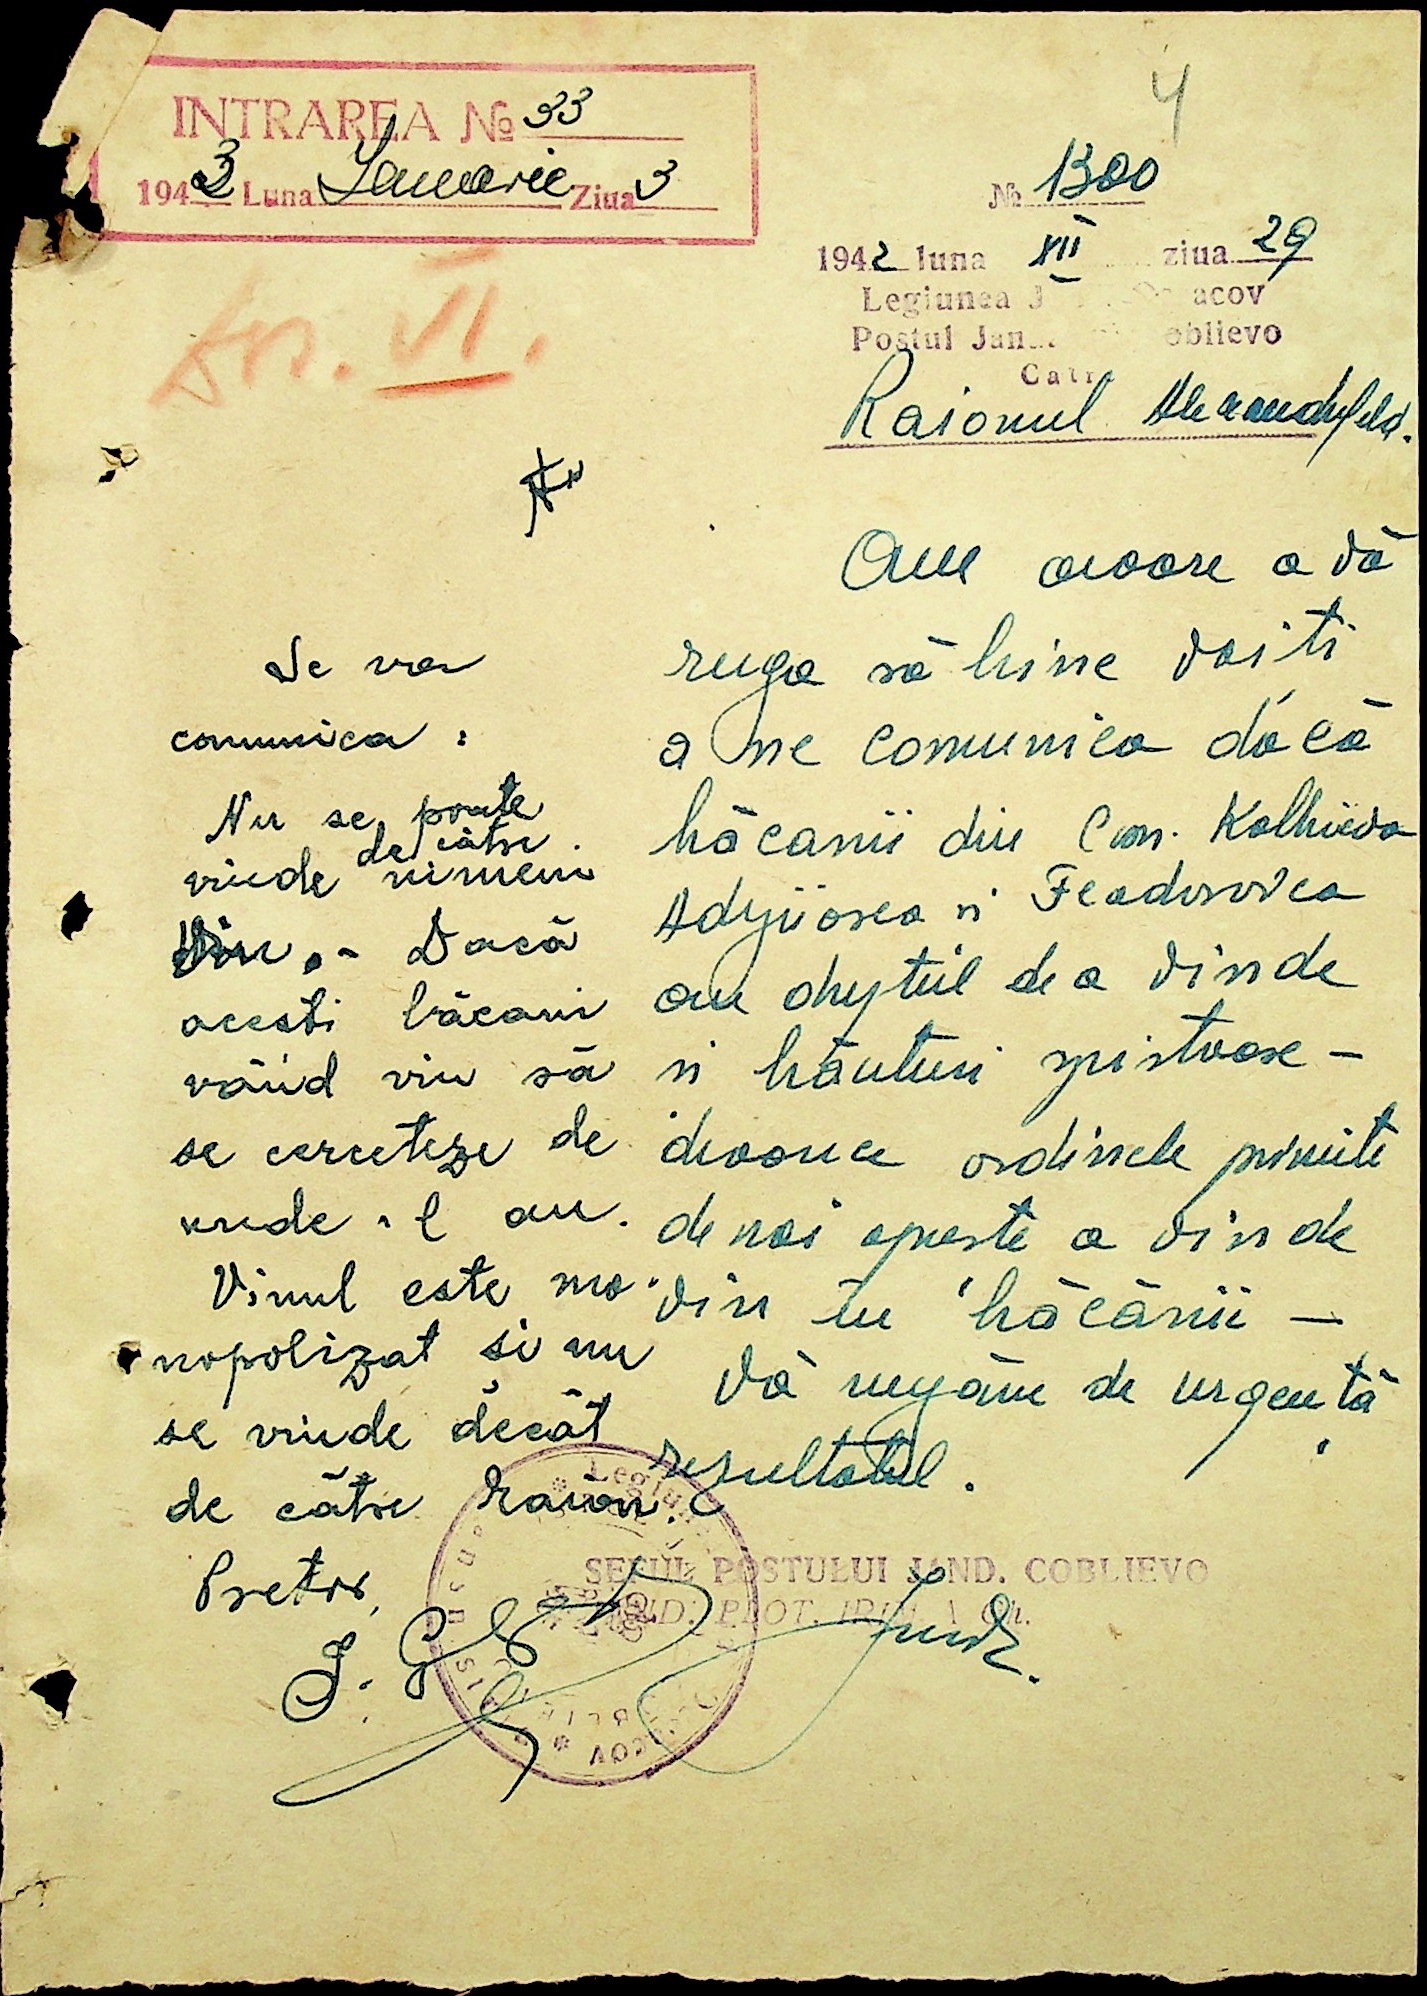 INTRAREA № 33
1943 Luna Ianuarie Ziua 3
4
№ 1300
1942 luna XII ziua 29
Legiunea J acov
Postul Jan oblievo
Catr
Raionul Alexandrfeld.
VI.
Am onoare a vă
ruga să bine voiti
a ne comunica dácă
băcanii din Com. Kalhiievo
si Feadorovca
au dreptul de a vinde
si băuturi spirtoase –
deoarece ordinele primite
de noi opreste a vinde
vin în băcănii –
Vă rugăm de urgentă
resultatul.
SEFUL POSTULUI JAND. COBLIEVO
PLOT.
Se va
comunica :
Nu se poate
vinde de către nimeni
Vin. - Dacă
acesti băcani
vând vin să
se cerceteze de
unde -l au.
Vinul este mo-
nopolizat și nu
se vinde decât
de către raion.
Pretor,